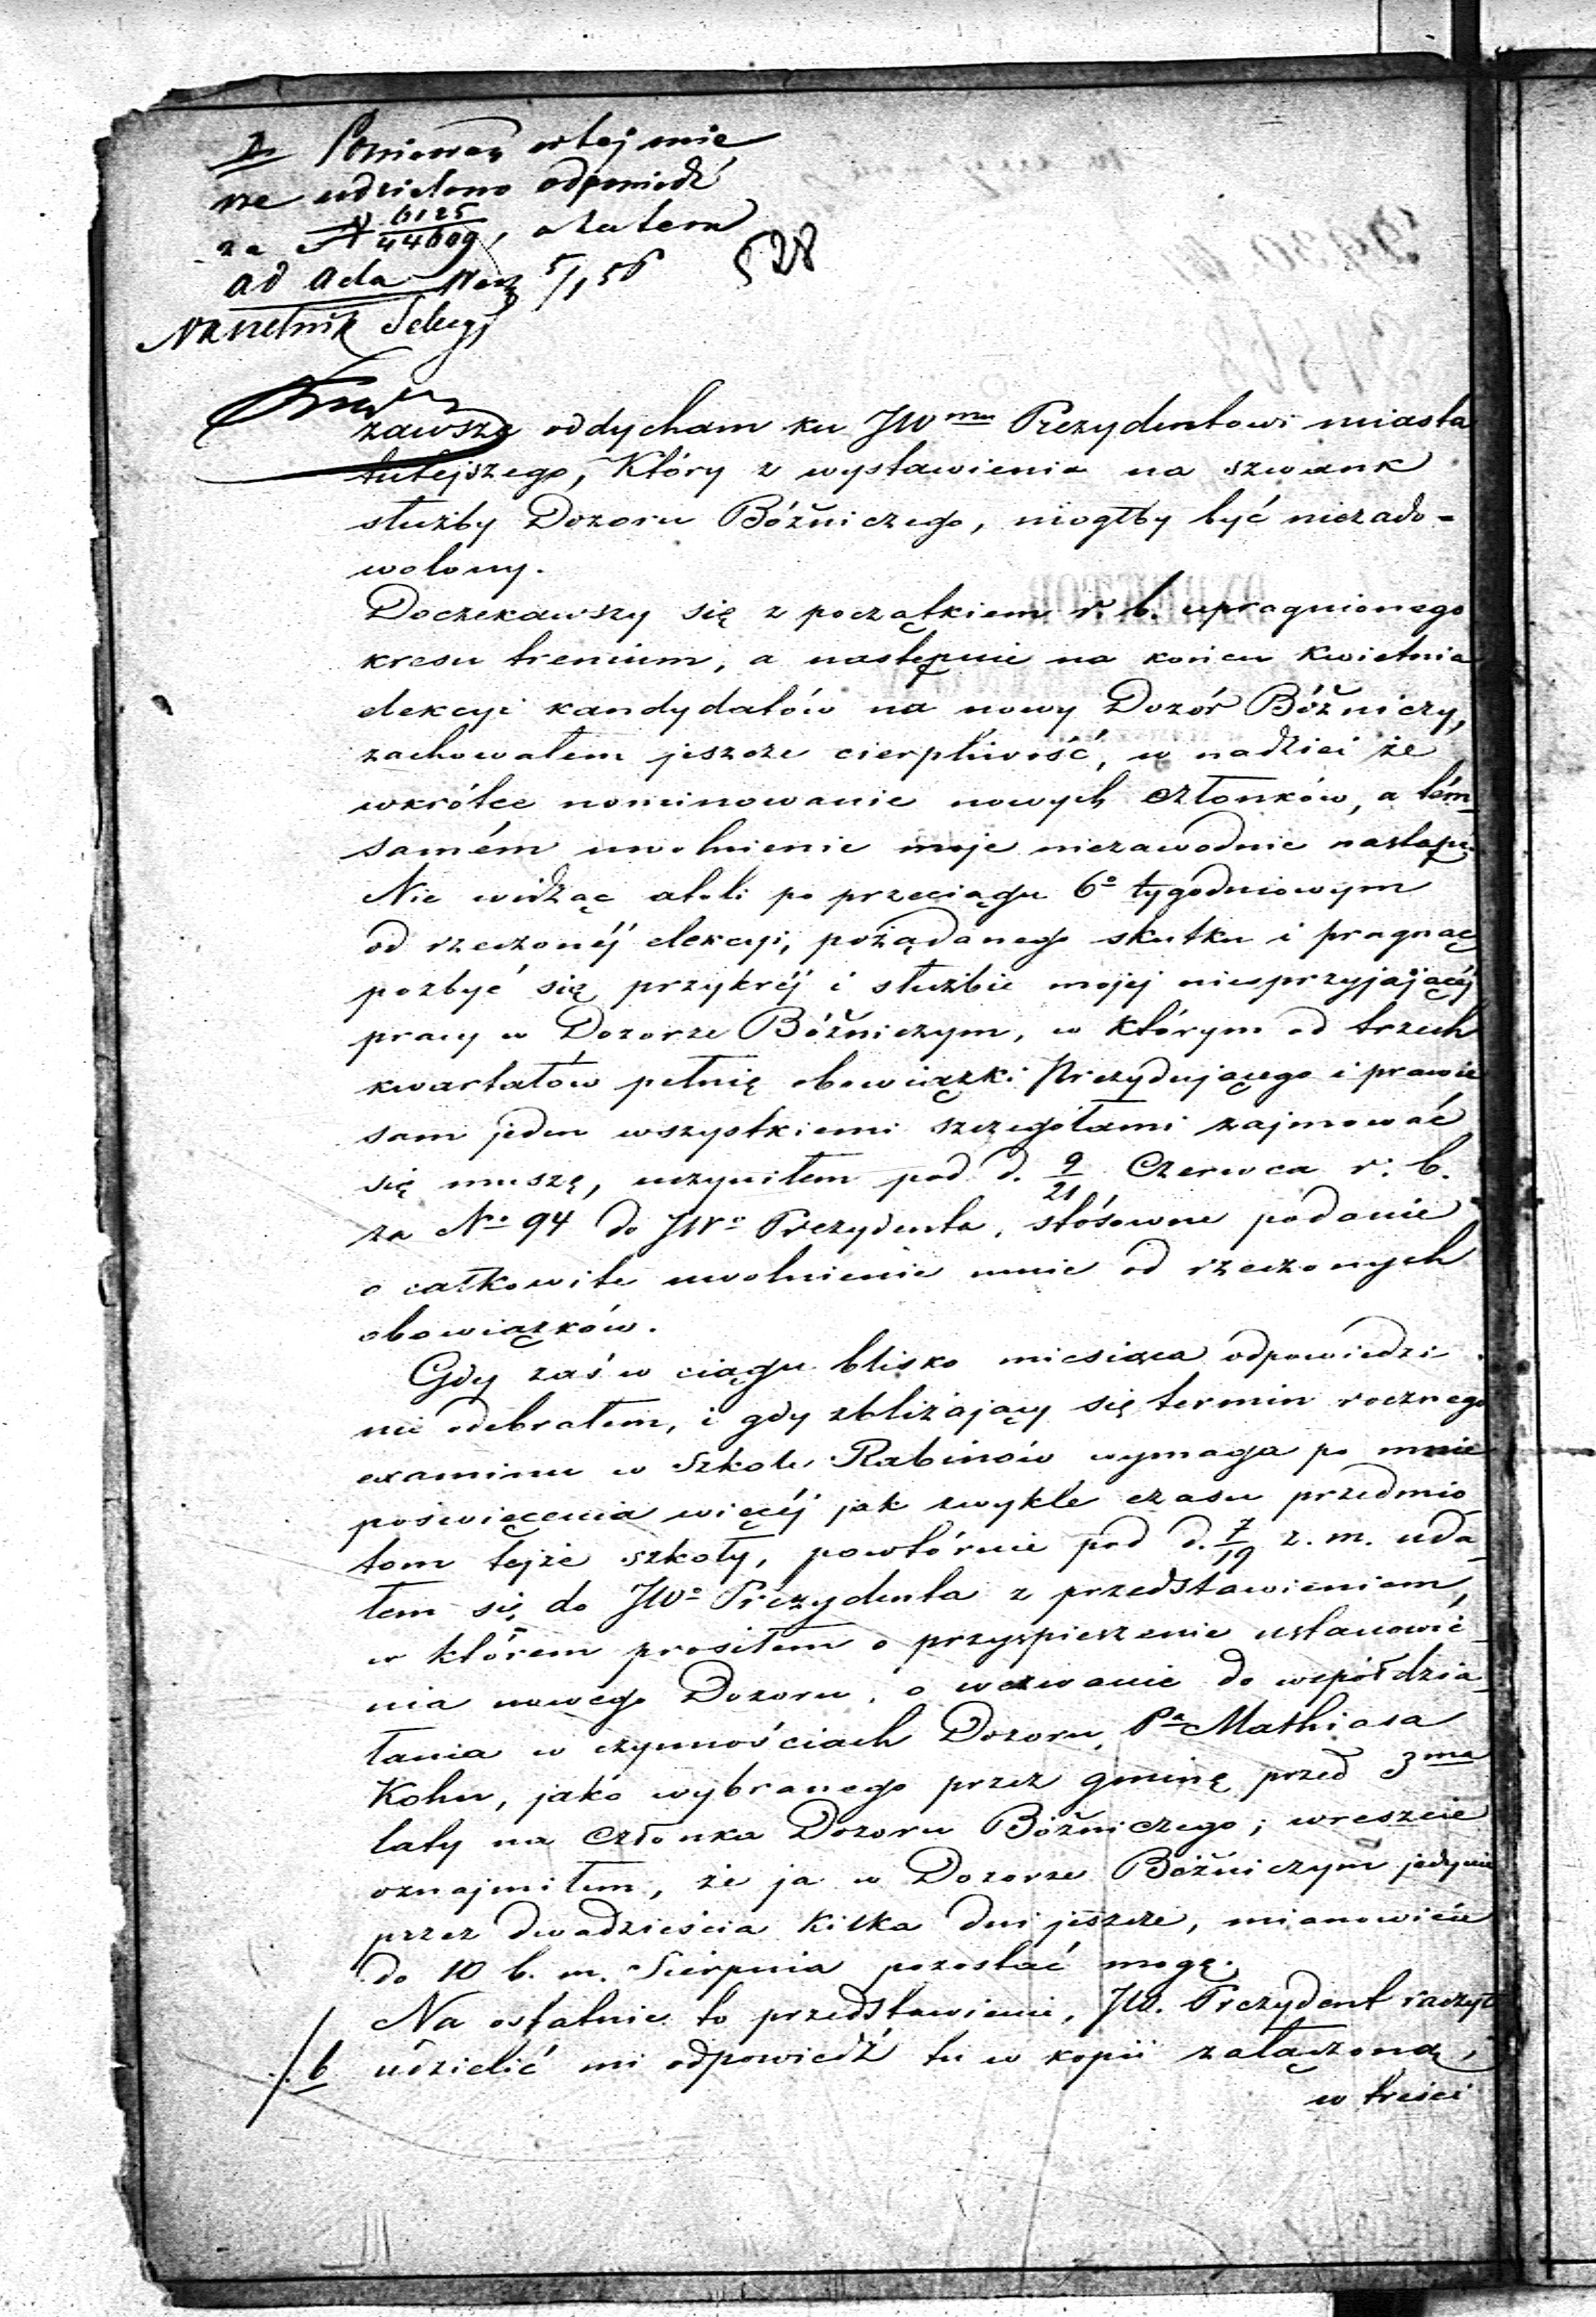 Ponieważ w tej mie
rze udzielono odpowiedź
za N 6125/44609, a zatem
ad acta 5/1 56
Naczelnik Sekcyi
528
zawsze oddycham ku JWmu Prezydentowi miasta
tutejszego, który z wystawienia na szwank
służby Dozoru Bóżniczego, mógłby być niezado-
wolony.
Doczekawszy się z początkiem r. b. upragnionego
kresu trenium, a następnie na końcu Kwietnia
elekcyi kandydatów na nowy Dozór Bóżniczy,
zachowałem jeszcze cierpliwość, w nadziei że
wkrótce nominowanie nowych członków, a tém
samém uwolnienie moje niezawodnie nastąpi.
Nie widząc atoli po przeciągu 6o tygodniowym
od rzeczonéj elekcyi, pożądanego skutku i pragnąc
pozbyć się przykréj i służbie mojej niesprzyjającéj
pracy w Dozorze Bóżniczym, w którym od trzech
kwartałów pełnię obowiązki Prezydującego i prawie
sam jeden wszystkiemi szczegółami zajmować
się muszę, uczyniłem pod d. 9/21 Czerwca r. b.
za No 94 do JWo Prezydenta, stósowne podanie
o całkowite uwolnienie mnie od rzeczonych
obowiązków.
Gdy zaś w ciągu blisko miesiąca odpowiedzi
nie odebrałem, i gdy zbliżający się termin rocznego
examinu w Szkole Rabinów wymaga po mnie
poswięcenia więcéj jak zwykle czasu przedmio
tom tejże szkoły, powtórnie pod d. 7/19 z. m. uda
łem się do JWo Prezydenta z przedstawieniem,
w którem prosiłem o przyspieszenie ustanowie
nia nowego Dozoru, o wezwanie do współdzia
łania w czynnościach Dozoru, Pa Mathiasa
Kohn, jako wybranego przez gminę przed 3ma
laty na członka Dozoru Bóżniczego; wreszcie
oznajmiłem, że ja w Dozorze Bóżniczym jedynie
przez dwadzieścia kilka dni jeszcze, mianowicie
do 10 b. m. Sierpnia pozostać mogę.
Na ostatnie to przedstawienie, JW. Prezydent raczył
b udzielić mi odpowiedź tu w kopii załączoną,
w treści